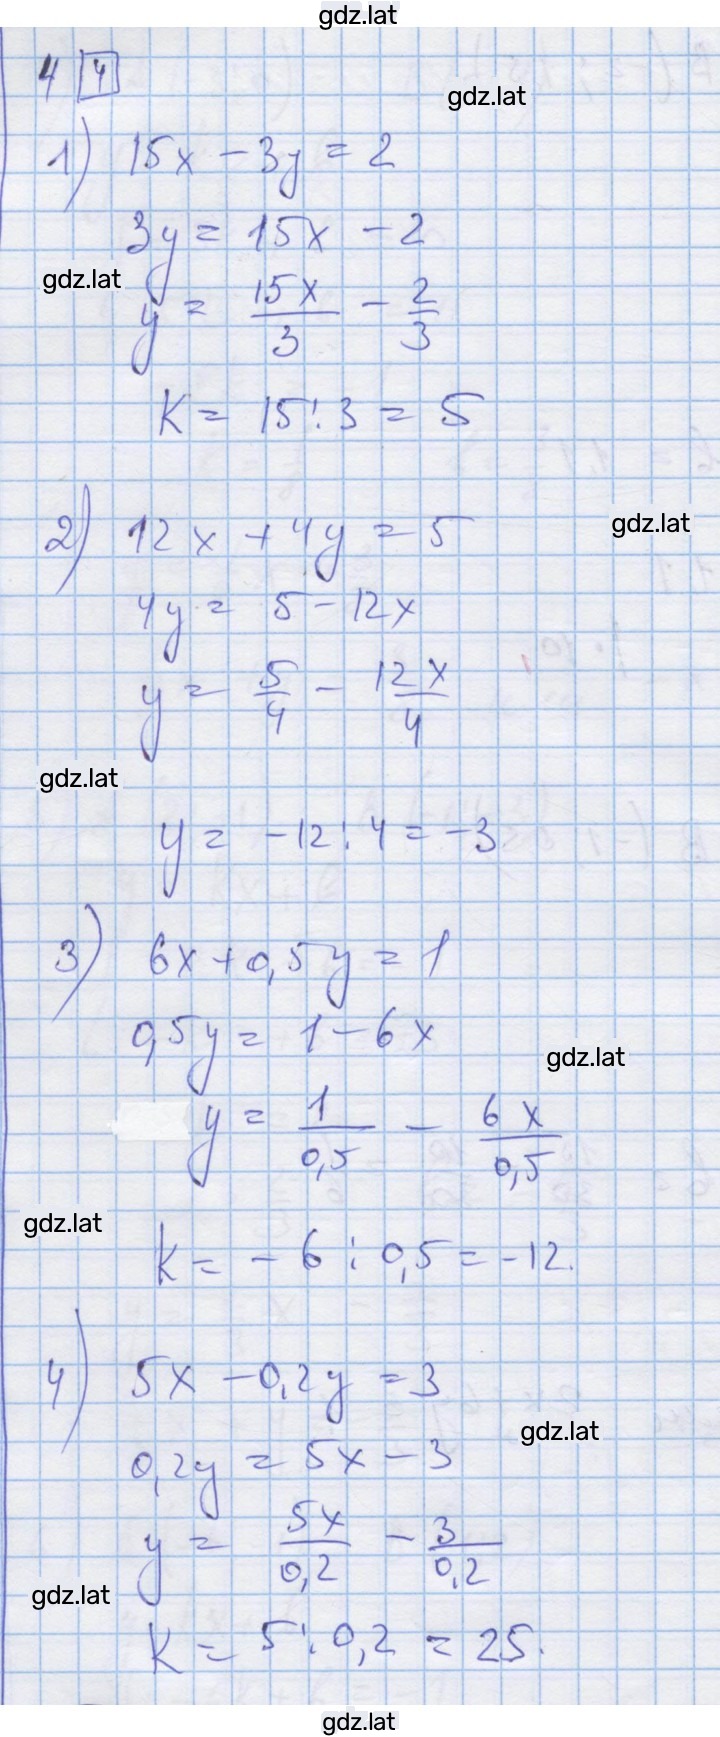 gdz.lat
4 4
gdz.lat
1) 15x - 3y = 2
3y = 15x - 2
gdz.lat
y = 15x/3 - 2/3
K = 15:3 = 5
gdz.lat
2) 12x + 4y = 5
4y = 5 - 12x
y = 5/4 - 12x/4
gdz.lat
y = -12:4 = -3
3) 6x + 0,5y = 1
0,5y = 1 - 6x
gdz.lat
y = 1/0,5 - 6x/0,5
gdz.lat
k = -6:0,5 = -12.
4) 5x - 0,2y = 3
gdz.lat
0,2y = 5x - 3
y = 5x/0,2 - 3/0,2
gdz.lat
K = 5:0,2 = 25.
gdz.lat